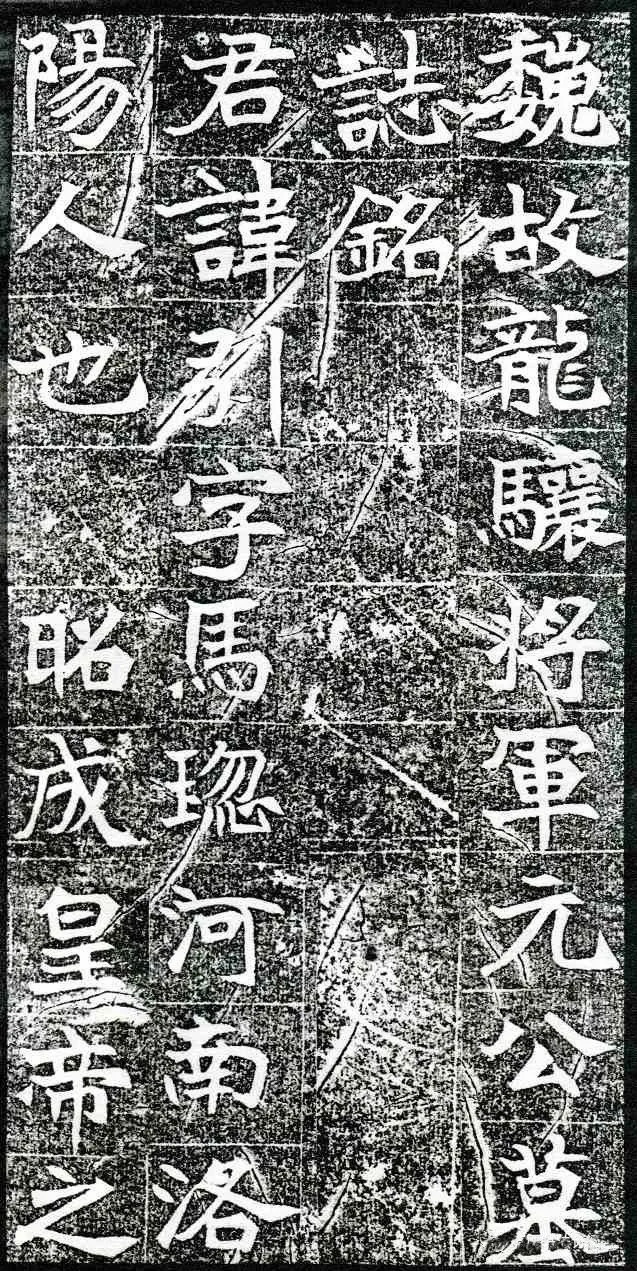 魏故龍驤將軍元公墓
誌銘
君諱引字馬琩河南洛
陽人也昭成皇帝之